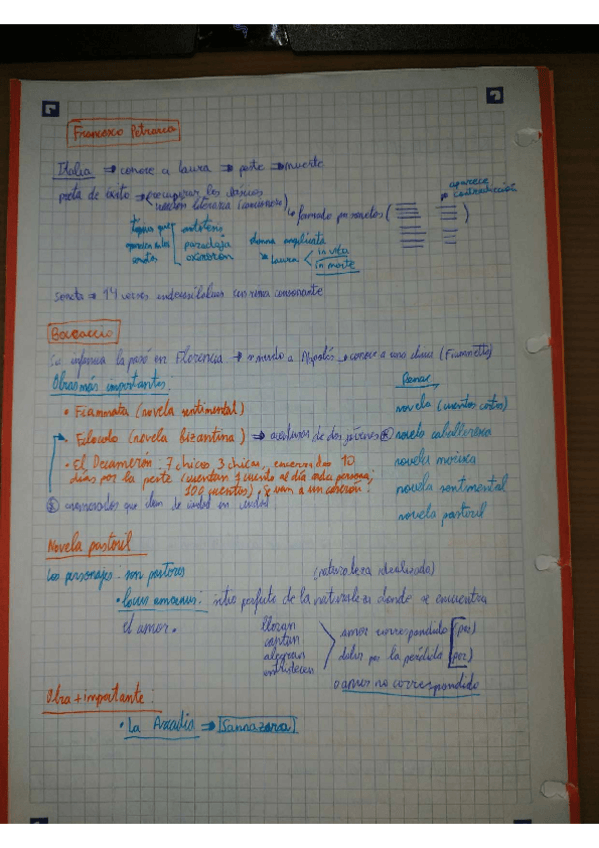 Francesco Petrarca
Italia → conoce a Laura → peste → muerte
poeta de éxito → recuperar los clásicos
creación literaria (cancionero)
↳ formado por sonetos (
aparece
contradicción
tópicos que
aparecen en los
sonetos
antítesis
paradoja
oxímoron
donna angelicata
↳ Laura < in vita
in morte
soneto → 14 versos endecasílabos con rima consonante
Boccaccio
Su infancia la pasó en Florencia → mundo a Nápoles → conoce a una chica (Fiammetta)
Obras más importantes:
• Fiammata (novela sentimental)
• Filocolo (novela bizantina) → aventuras de dos jóvenes
• El Decamerón: 7 chicas, 3 chicos, encerrados 10
días por la peste (cuentan 1 cuento al día cada persona,
100 cuentos)
enamorados que van de ciudad en ciudad
novela (cuentos cortos)
novela caballeresca
novela morisca
novela sentimental
novela pastoril
Novela pastoril
Los personajes: son pastores
(naturaleza idealizada)
• locus amoenus: sitio perfecto de la naturaleza donde se encuentra
el amor.
lloran
cantan
alegran
entristecen
amor correspondido
dolor por la pérdida
o amor no correspondido
Obra + importante:
• La Arcadia → Sannazaro